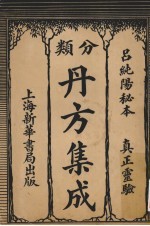 分類
呂純陽秘本
真正靈驗
丹方集成
上海新華書局出版